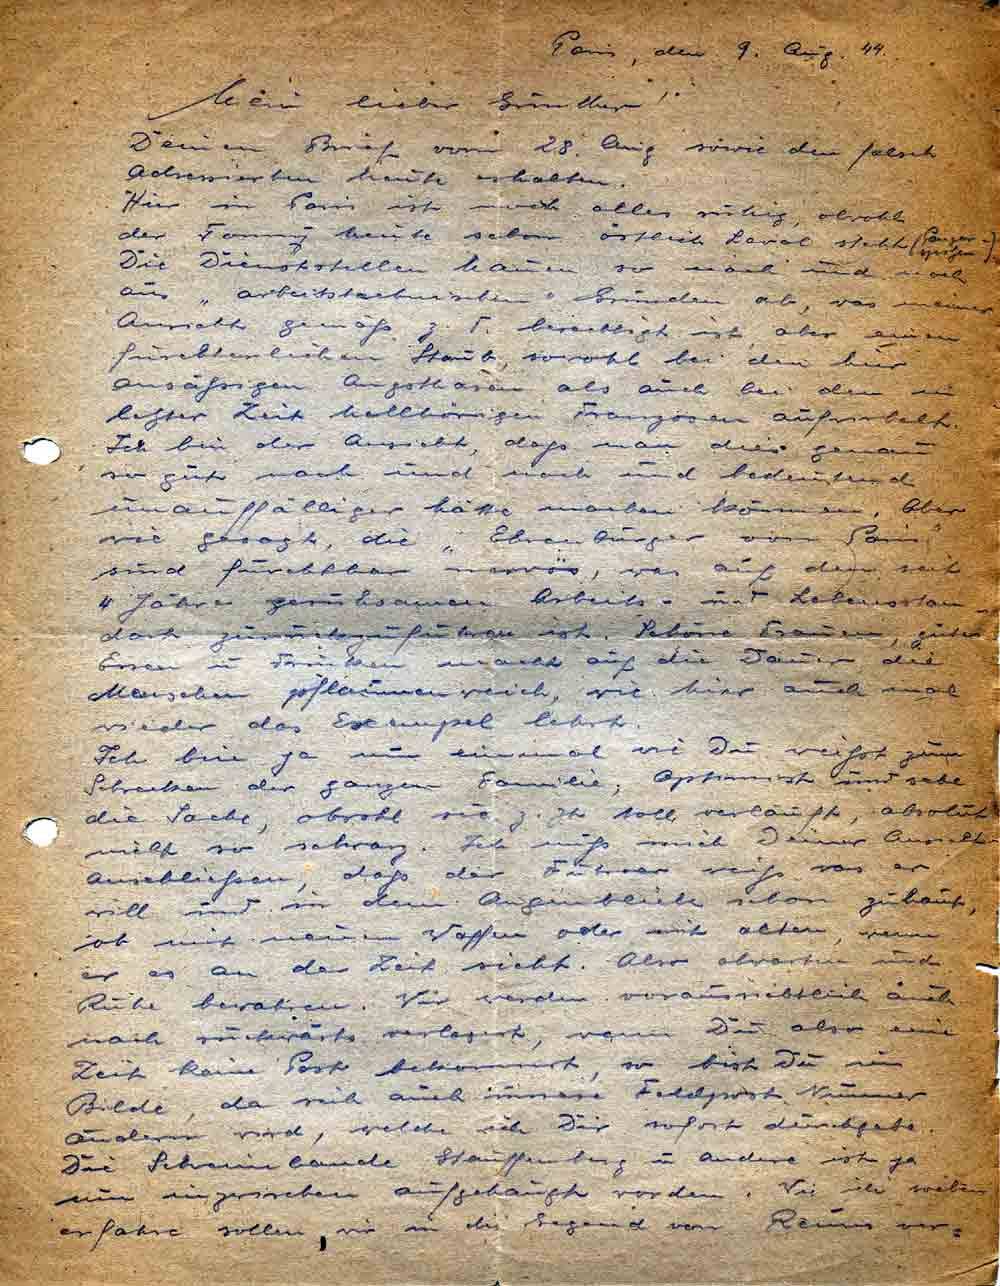 Paris, den 9. Aug. 44.
Mein lieber Günther!
Deinen Brief vom 28. Aug sowie den falsch
Adressierten heute erhalten.
Hier in Paris ist noch alles ruhig, obwohl
der Tommy heute schon östlich Laval steht (Panzer-
spitzen)
Die Dienststellen hauen so nach und nach
aus „arbeitstechnischen" Gründen ab, was meiner
Ansicht gemäß z. T. berechtigt ist, aber einen
fürchterlichen Staub, sowohl bei den hier
ansäßigen Angsthasen als auch bei den in
letzter Zeit hellhörigen Franzosen aufwirbelt.
Ich bin der Ansicht, daß man dies genau
so gut nach und nach und bedeutend
unauffälliger hätte machen können. Aber
wie gesagt, die „Ehrenbürger von Paris"
sind furchtbar nervös, was auf den seit
4 Jahre geruhsamen Arbeits- und Lebensstan-
dart zurückzuführen ist. Schöne Frauen, gutes
Essen u Trinken macht auf die Dauer die
Menschen pflaumenweich, wie hier auch mal
wieder das Exempel lehrt.
Ich bin ja nun einmal wie Du weißt zum
Schrecken der ganzen Familie, Optimist und sehe
die Sache, obwohl sie z. Zt. toll verläuft, absolut
nicht so schwarz. Ich muß mich Deiner Ansicht
anschließen, daß der Führer weiß was er
will und in dem Augenblick schon zuhaut,
ob mit neuen Waffen oder mit alten, wenn
er es an der Zeit sieht. Also abwarten und
Ruhe bewahren. Wir werden voraussichtlich auch
nach rückwärts verlagert, wenn Du also eine
Zeit keine Post bekommst, so bist Du im
Bilde, da sich auch unsere Feldpost Nummer
ändern wird, welche ich Dir sofort durchgebe.
Die Schweinebande Stauffenberg u andere ist ja
nun inzwischen aufgehängt worden. Wie ich weiter
erfahre sollen wir in die Gegend von Reims ver-